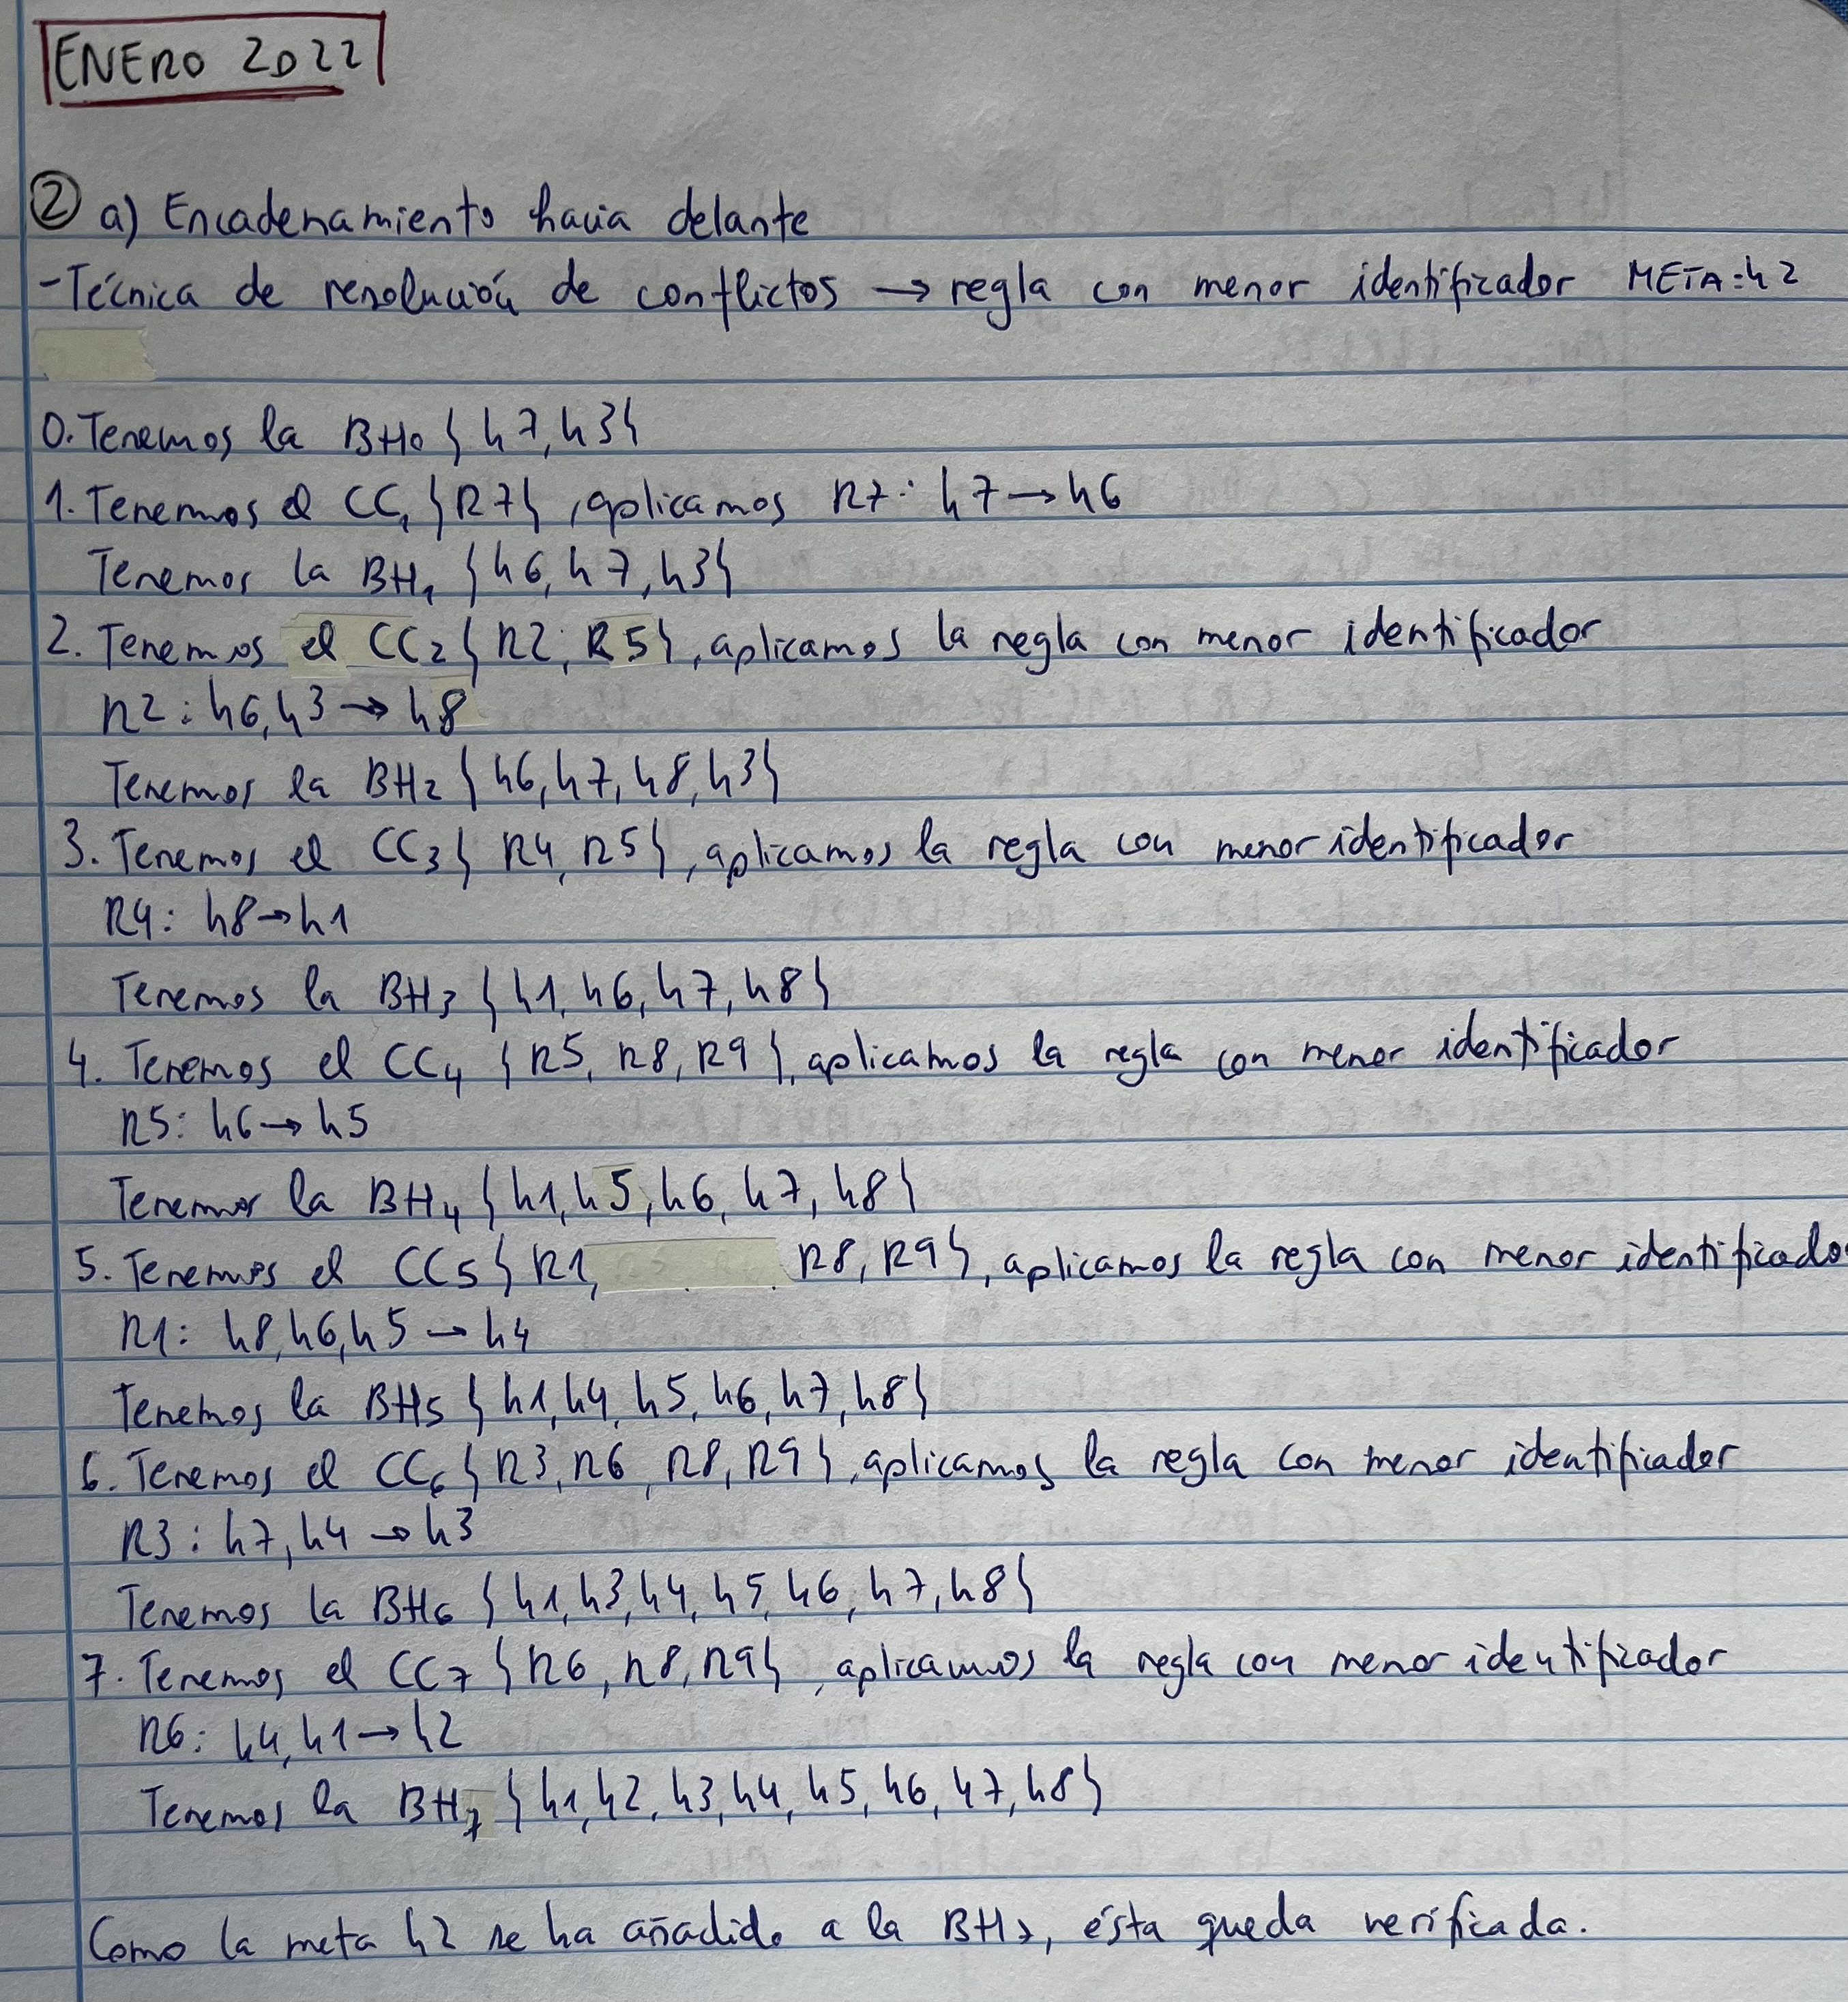 ENERO 2022
② a) Encadenamiento hacia delante
-Técnica de resolución de conflictos → regla con menor identificador META=h2
0. Tenemos la BH₀ {h7, h3}
1. Tenemos el CC₁ {R7}, aplicamos R7: h7 → h6
Tenemos la BH₁ {h6, h7, h3}
2. Tenemos el CC₂ {R2, R5}, aplicamos la regla con menor identificador
R2: h6, h3 → h8
Tenemos la BH₂ {h6, h7, h8, h3}
3. Tenemos el CC₃ {R4, R5}, aplicamos la regla con menor identificador
R4: h8 → h1
Tenemos la BH₃ {h1, h6, h7, h8}
4. Tenemos el CC₄ {R5, R8, R9}, aplicamos la regla con menor identificador
R5: h6 → h5
Tenemos la BH₄ {h1, h5, h6, h7, h8}
5. Tenemos el CC₅ {R1, R8, R9}, aplicamos la regla con menor identificado
R1: h8, h6, h5 → h4
Tenemos la BH₅ {h1, h4, h5, h6, h7, h8}
6. Tenemos el CC₆ {R3, R6, R8, R9}, aplicamos la regla con menor identificador
R3: h7, h4 → h3
Tenemos la BH₆ {h1, h3, h4, h5, h6, h7, h8}
7. Tenemos el CC₇ {R6, R8, R9}, aplicamos la regla con menor identificador
R6: h4, h1 → h2
Tenemos la BH₇ {h1, h2, h3, h4, h5, h6, h7, h8}
Como la meta h2 se ha añadido a la BH₇, ésta queda verificada.